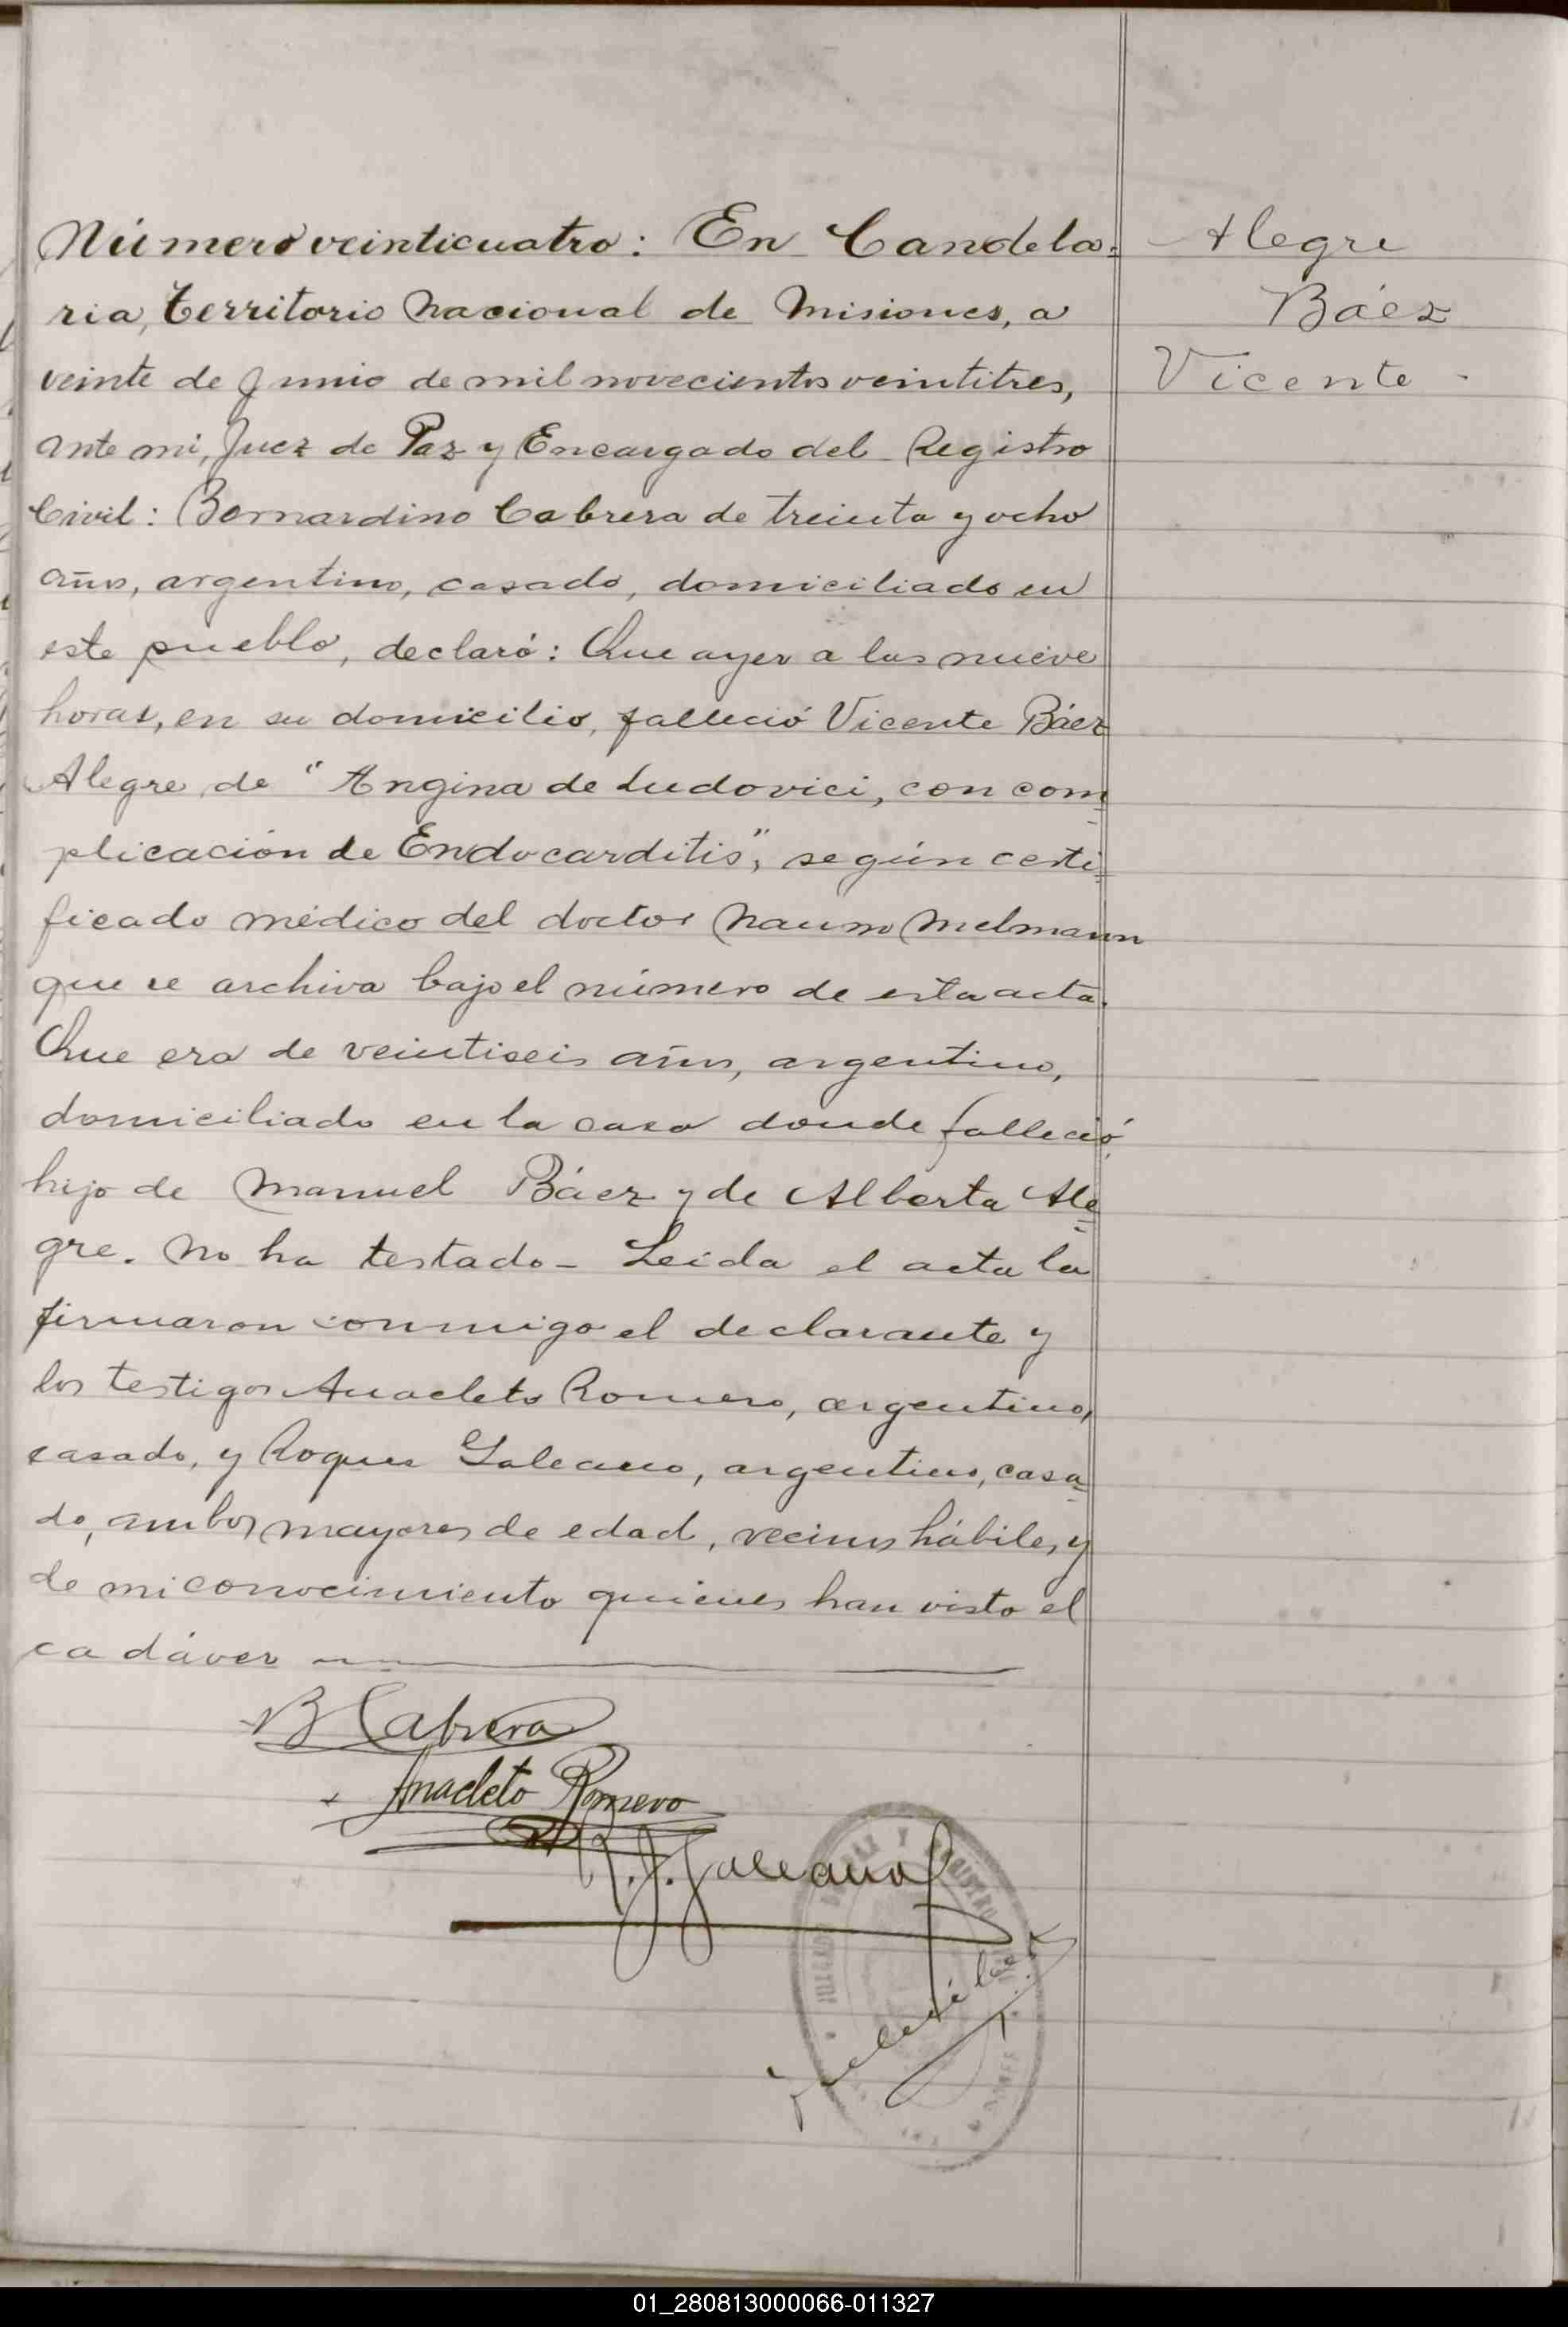 Número veinticuatro: En Candela=
ria, Territorio Nacional de Misiones, a
veinte de Junio de mil novecientos veintitres,
ante mi, Juez de Paz y Encargado del Registro
Civil: Bernardino Cabrera de treinta y ocho
años, argentino, casado, domiciliado en
este pueblo, declaró: Que ayer a las nueve
horas, en su domicilio, falleció Vicente Báez
Alegre de "Angina de Ludovici, con com=
plicación de Endocarditis", según certi=
ficado médico del doctor Naum Melmann
que se archiva bajo el número de esta acta.
Que era de veintiseis años, argentino,
domiciliado en la casa donde falleció,
hijo de Manuel Báez y de Alberta Ale=
gre. No ha testado - Leida el acta la
firmaron conmigo el declarante y
los testigos Anacleto Romero, argentino,
casado, y Roque Galeano, argentino, casa=
do, ambos mayores de edad, vecinos hábiles y
de mi conocimiento quienes han visto el
cadáver
B Cabrera
Anacleto Romero
R. J. Galeano
JUZGADO DE PAZ Y REGISTRO
Alegre
Báez
Vicente -
01_280813000066-011327